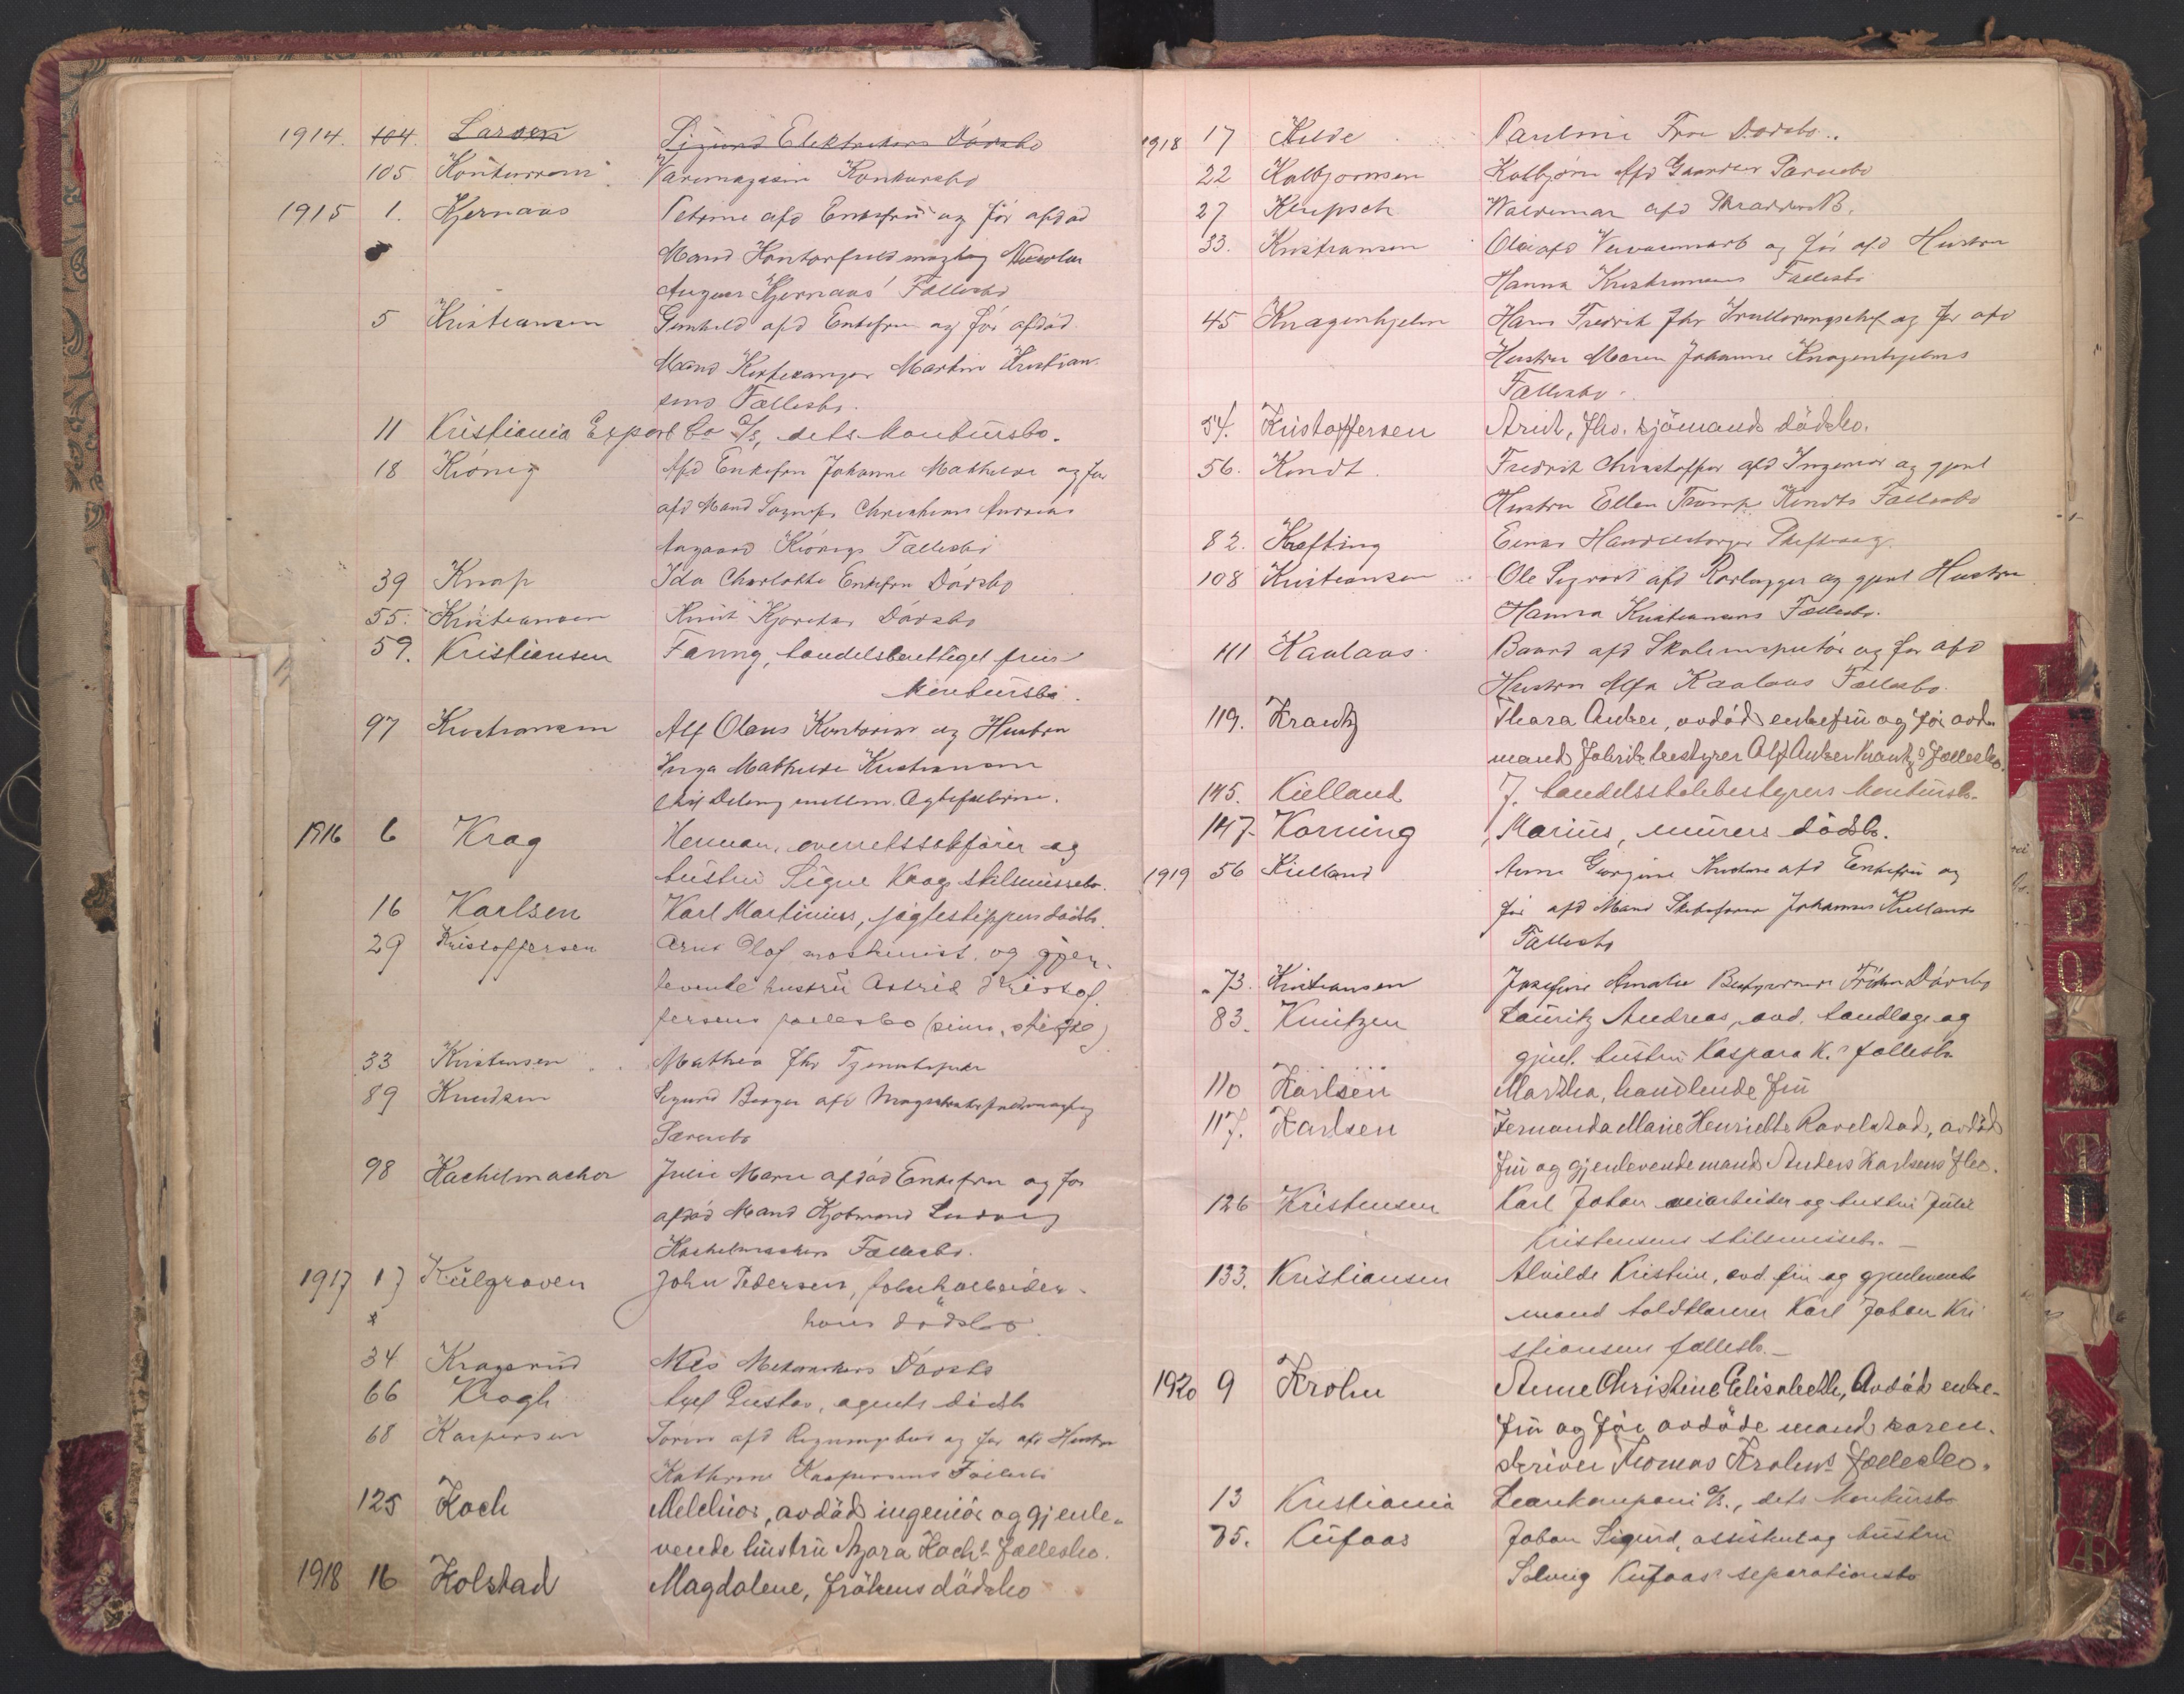 1914. 104. Larsen Sigurd Elektrikers Dødsbo
105 Varemagasin Konkursbo
1915 1. Kjernaas Petrine afd Enkefru og før afdød
Mand Kontorfuldmægtig
August Kjernaas' Fællesbo
5 Kristiansen Gunhild afd Enkefru og før afdød
Mand Kirkesanger Martin Kristian-
sens Fællesbo.
11 Kristiania Export Co A/S, dets konkursbo.
18 Kiönig Afd Enkefru Johanne Mathilde og før
afd Mand Sognepr Christian Andreas
Aagaard Kiönigs Fællesbo
39 Knap Ida Charlotte Enkefru Dødsbo
55. Kristiansen Knut Dødsbo
59. Kristiansen Fanny, handelsberettiget frues
konkursbo.
97 Kristiansen Alf Olaus Kontorist og Hustru
Inga Mathilde Kristiansen
Deling mellem Ægtefællerne.
1916 6 Krag Herman, overretssakfører og
hustru Signe Krags skilsmissebo.
16 Karlsen Karl Martinius, jægteskippers dødsbo.
29 Kristoffersen Arnt Olaf maskinist og gjen-
levende hustru Astrid Kristof-
fersens fællesbo
33 Kristensen Mathea Fhv Tjenestepike
89 Knudsen Sigurd Berger afd Magistratsfuldmægtig
Særeiebo
98 Kachelmacher Julie Marie afdød Enkefru og for
afdød Mand Kjøbmand Ludvig
Kachelmachers Fællesbo.
1917 17 Külgraven John Pedersen, fabrikarbeider-
hans dødsbo.
34 Kragerud Nils Mekanikers Dødsbo
66 Krogh Axel Gustav, agents dødsbo
68 Kaspersen afd og før afd Hustru
Kathrine Kaspersens Fællesbo
125 Koch Melchior, avdød ingeniør og gjenle-
vende hustru Azora Kochs fællesbo.
1918 16 Kolstad Magdalene, frøkens dødsbo
1918 17 Kilde Pauline Frue Dødsbo.
22 Kolbjørnsen Kolbjørn afd Gaardeier Særeiebo
27 Klupsch Waldemar afd
33. Kristiansen Ole afd og før afd Hustru
Hanna Kristiansens Fællesbo
45 Knagenhjelm Hans Fredrik Fhv og før afd
Hustru Maren Johanne Knagenhjelms
Fællesbo.
54. Kristoffersen Arnt, fhv. sjömands dödsbo.
56. Kindt. Fredrik Christoffer afd Ingeniør og gjenl
Hustru Ellen Kindts Fællesbo
82. Krefting Einar
108 Kristiansen Ole Sigvart afd Rørlægger og gjenl Hustru
Hanna Kristiansens Fællesbo.
111 Kaalaas Baard afd Skoleinspektør og før afd
Hustru Kaalaas Fællesbo.
119. Krantz Thora Anker, avdød enkefru og før avd.
mand Fabrikbestyrer Alf Anker Krantz's fællesbo.
145. Kielland J. handelsskolebestyrers konkursbo.
147. Korning Marius, murers dødsbo.
1919 56 Kielland Anne Georgine Kirstine afd Enkefru og
før afd Mand Skibsfører Johannes Kiellands
Fællesbo
73. Kristiansen Josefine Amalie Bestyrerinde Frøken Dødsbo
83. Knitzen Lauritz Andreas, avd. tandlæge og
gjenl. hustru Kaspara K.s fællesbo
110 Karlsen Martha, handlende fru
117. Karlsen Fernanda Marie Henriette Ravelstad, avdød
fru og gjenlevende mand Anders Karlsens flbo.
126 Kristensen Karl Johan veiarbeider og hustru Julie
Kristensens skilsmissebo.
133. Kristiansen Alvilde Kristine, avd. fru og gjenlevende
mand toldklarerer Karl Johan Kri
stiansens fællesbo.
1920 9 Krohn Anne Christine Elisabeth, Avdød enke-
fru og før avdøde mand soren-
skriver Thomas Krohns fællesbo.
13 Kristiania Leankompani A/S., dets konkursbo
75. Kufaas Johan Sigurd, assistent og hustru
Solveig Kufaas's separationsbo